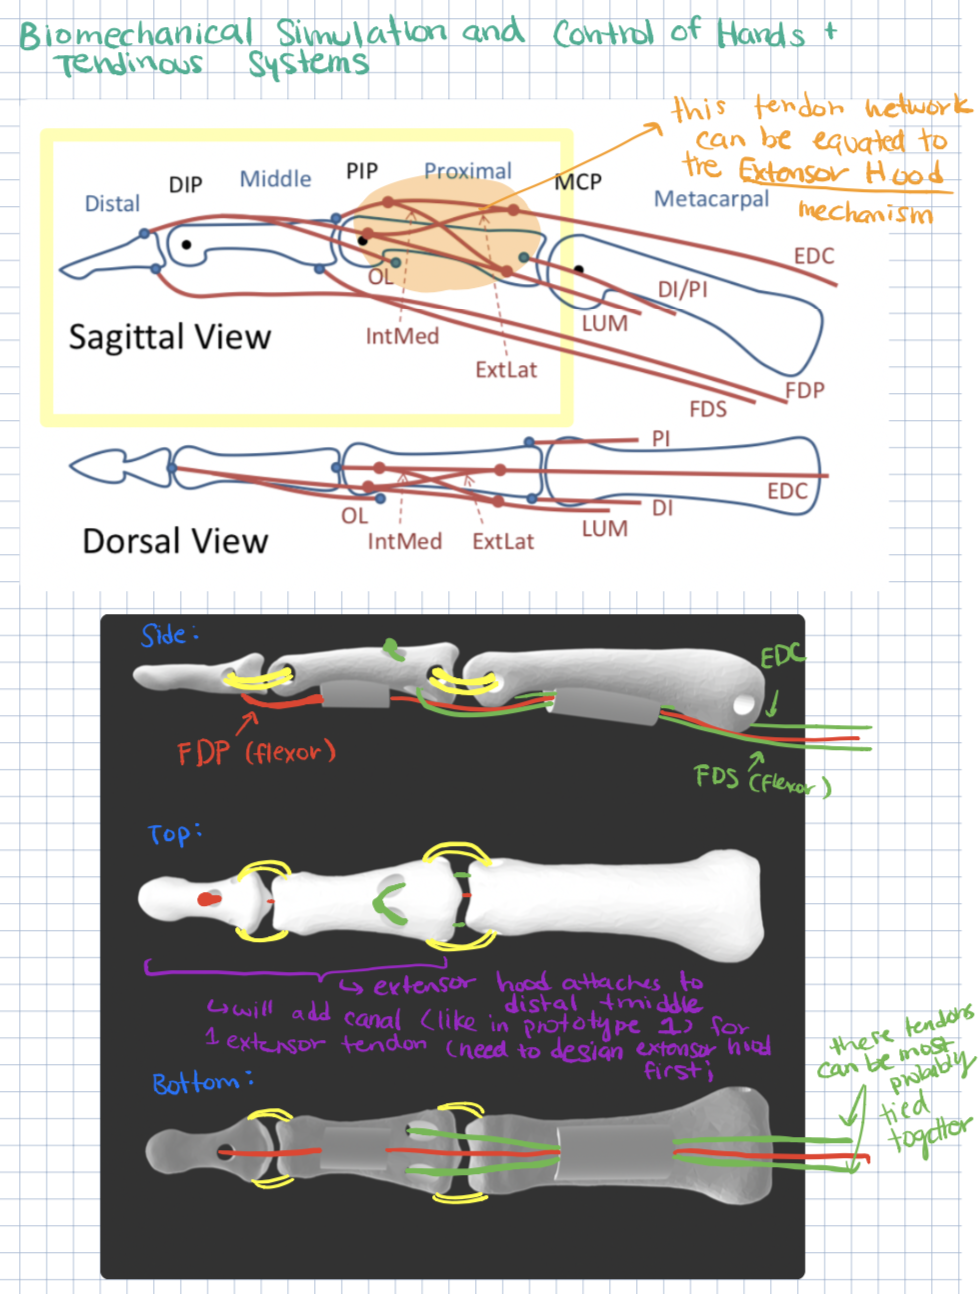 Biomechanical Simulation and Control of Hands +
Tendinous Systems
this tendon network
can be equated to
the Extensor Hood
mechanism
Distal
DIP
Middle
PIP
Proximal
MCP
Metacarpal
EDC
OL
DI/PI
LUM
IntMed
ExtLat
Sagittal View
FDP
FDS
PI
EDC
DI
OL
LUM
IntMed
ExtLat
Dorsal View
Side:
EDC
FDP (flexor)
FDS (flexor)
Top:
↳ extensor hood attaches to
distal + middle
↳ will add canal (like in prototype 1) for
1 extensor tendon (need to design extensor hood
first;
these tendons
can be most
probably
tied
together
Bottom: